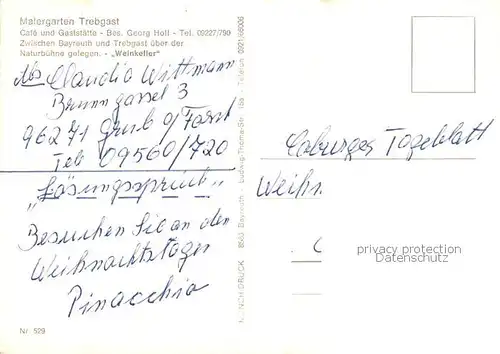 Maiergarten Trebgast
Café und Gaststätte - Bes. Georg Höll - Tel. 09227/790
Zwischen Bayreuth und Trebgast über der
Naturbühne gelegen. - „Weinkeller"
Abs Claudia Wittmann
Brunngassel 3
96271 Grub a/Forst
Tel 09560/720
„Lösungsspruch"
Besuchen Sie an den
Weihnachtstagen
Pinacchio
Nr. 529
DRUCK 8580 Bayreuth Ludwig-Thoma-Str. Telefon 0921/66006
Coburger Tageblatt
Weihn
privacy protection
Datenschutz